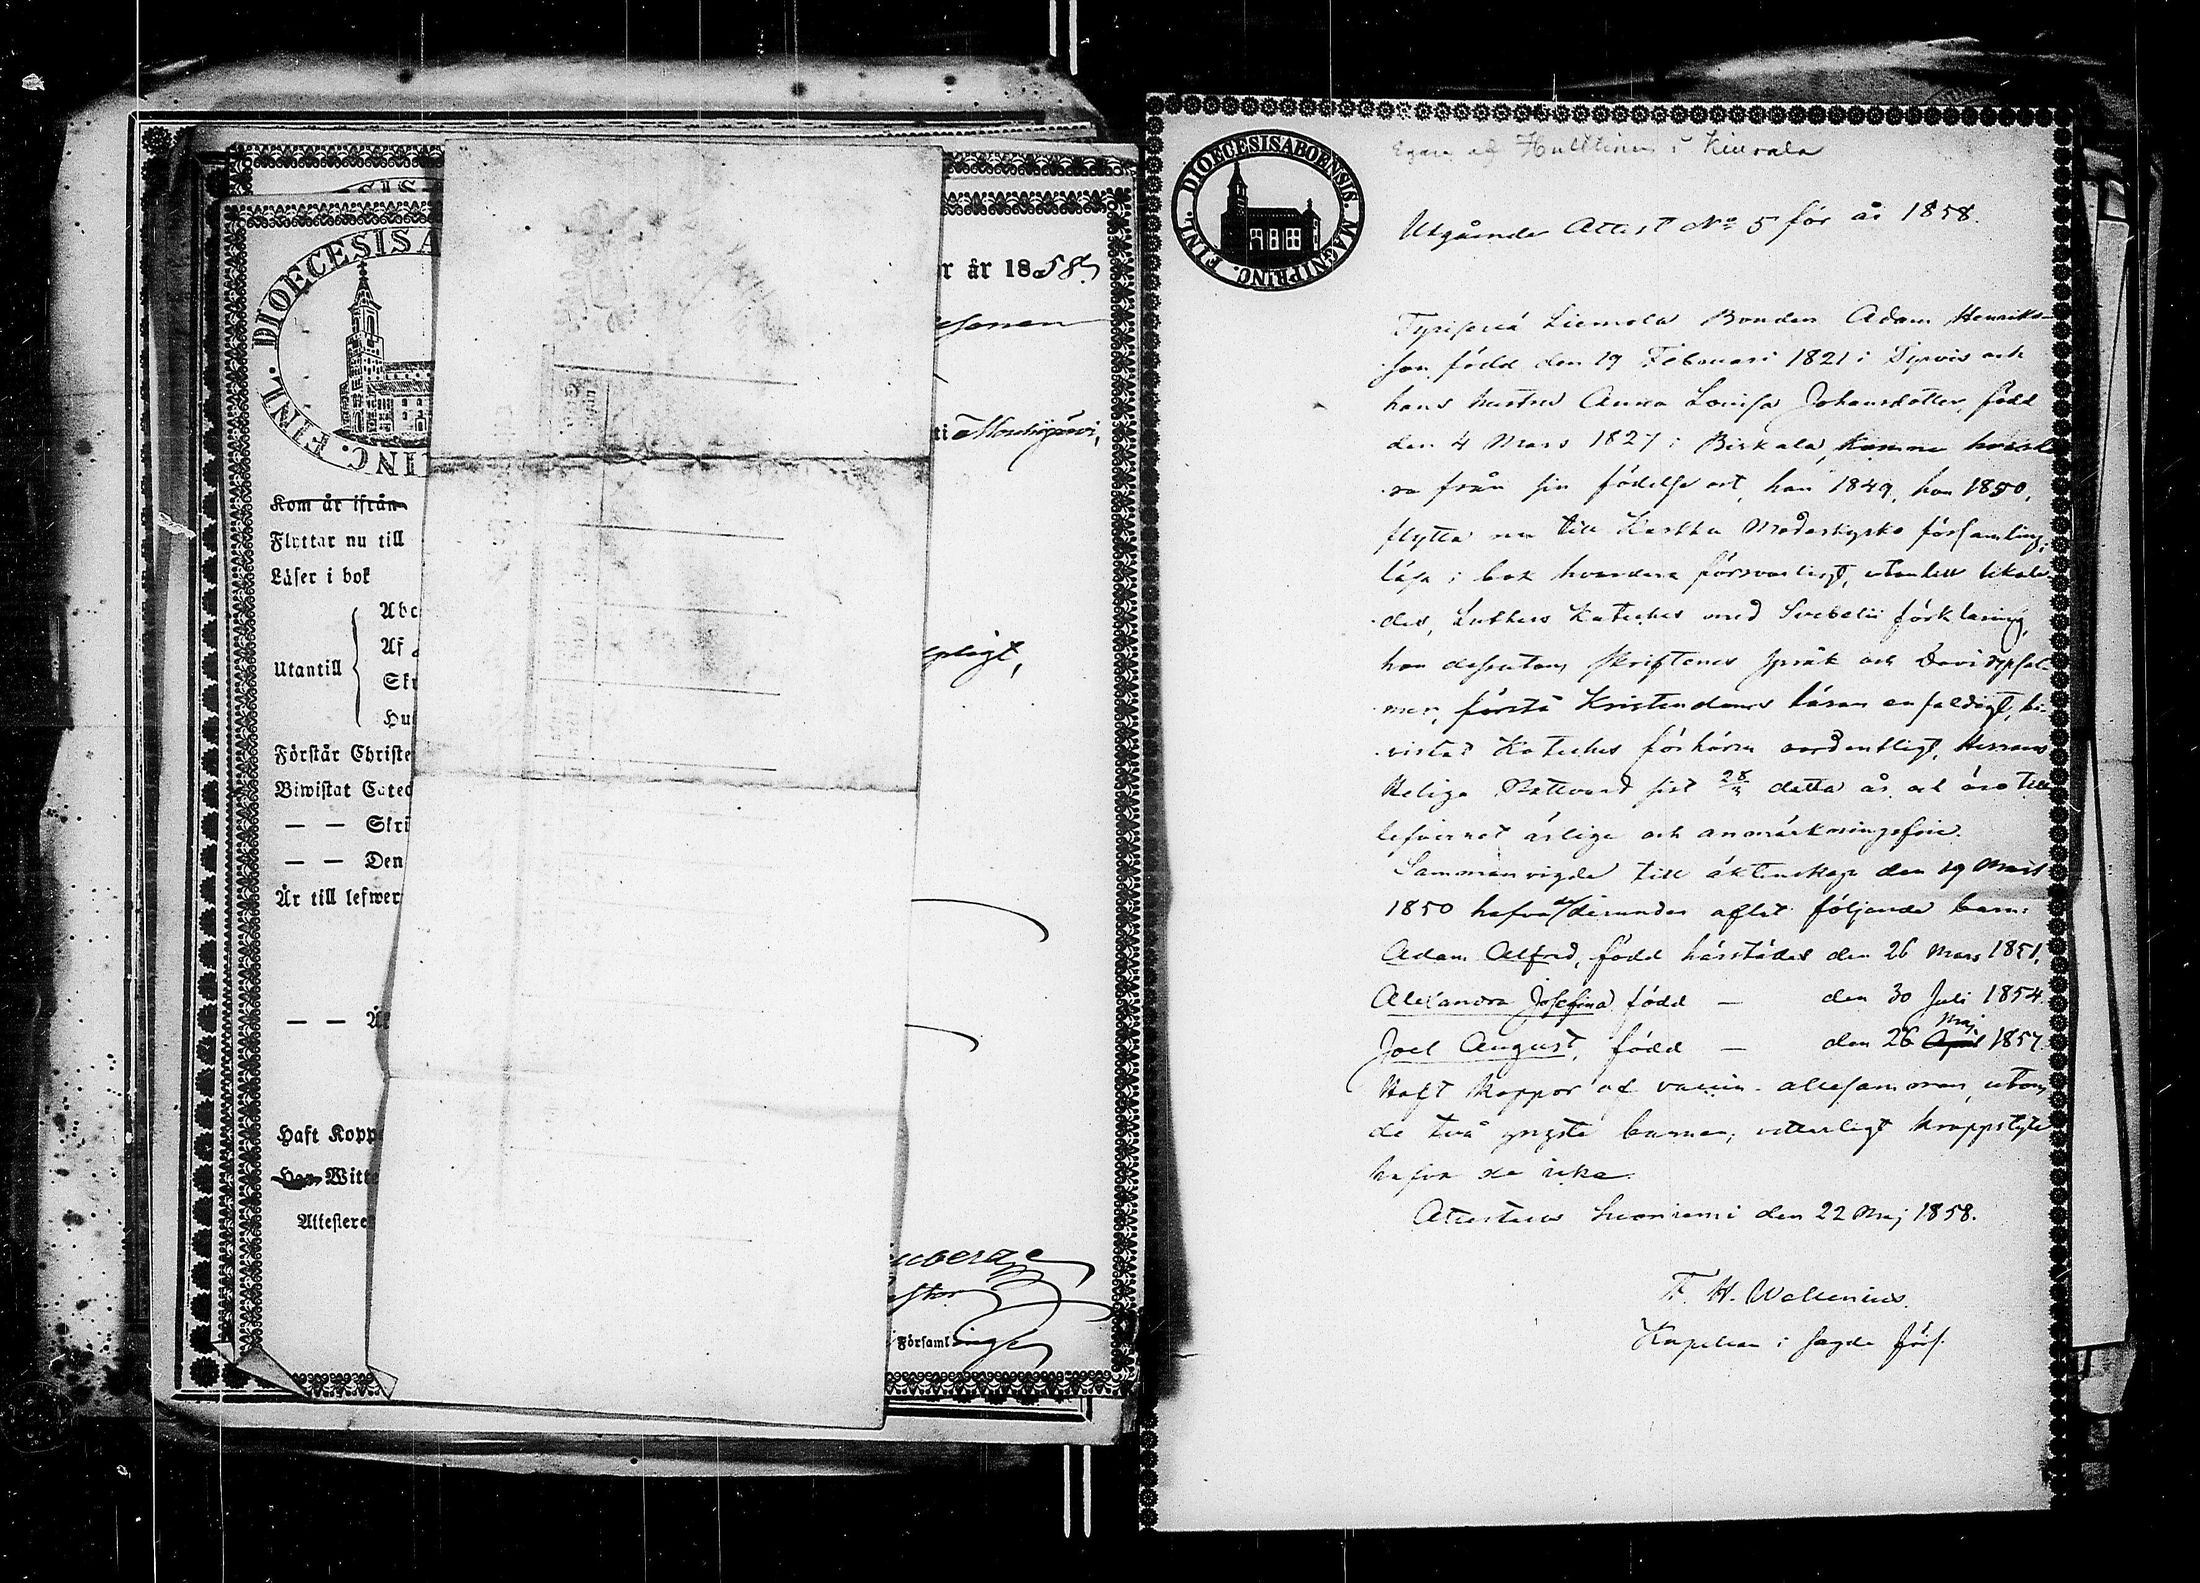 DIOECESIS A
INC. FINL.
r år 1858
ti
Kom år ifrån
Flyttar nu till
Läser i bok
Abc
Af
Utantill
Skr
Hu
Förstår Christe
Biwistat Catec
— — Skri
— — Den
Är till lefwer
— — Ä
Haft Kopp
Han Witte
Attestere
pligt,
Församl
DIOECESIS ABOENSIS. MAGNI PRINC. FINL.
Egare af Hulttinen i Kiurala
Utgående Attest No 5 för år 1858.
Liemola Bonden Adam Henriks-
son född den 19 Februari 1821 i Tyrvis och
hans hustru Anna Lovisa Johansdotter, född
den 4 Mars 1827 i Birkala, komne hvarde-
ra från sin födelse ort, han 1849, hon 1850,
flytta nu till Karkku Moderkyrko församling,
läsa i bok hvardera försvarligt, utantill likale-
des, Luthers Kateches med Svebelii förklaring,
hon dessutom skriftenes språk och Davidspsal-
mer, förstå Kristendoms läran enfaldigt, bi-
vistat Kateches förhören ordentligt, Herrans
Heliga Nattvard sist 28 detta år och äro till
lefvernet ärlige och anmärkningsfrie.
Sammanvigde till äktenskap den 19 Mars
1850 hafva derunder aflat följande barn:
Adam Alfred, född härstädes den 26 Mars 1851,
Alexandra Josefina född — den 30 Juli 1854.
Joel August, född — den 26 April Maj 1857.
Haft koppor af vaccin allesamman, utom
de två yngsta barnen; vetterligt kroppslyte
hafva de icke.
Attesteras Suoniemi den 22 Maj 1858.
F. H. Wallenius.
Kapellan i sagde förs.